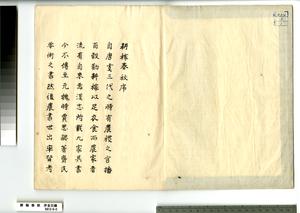 耕稼春秋序
自唐虞三代之時有農稷之官播
百穀勤耕稼以足衣食而農家者
流有自來焉漢志所載九家其書
今不傳至元魏時賈思勰著齊民
要術之書然後農書世出